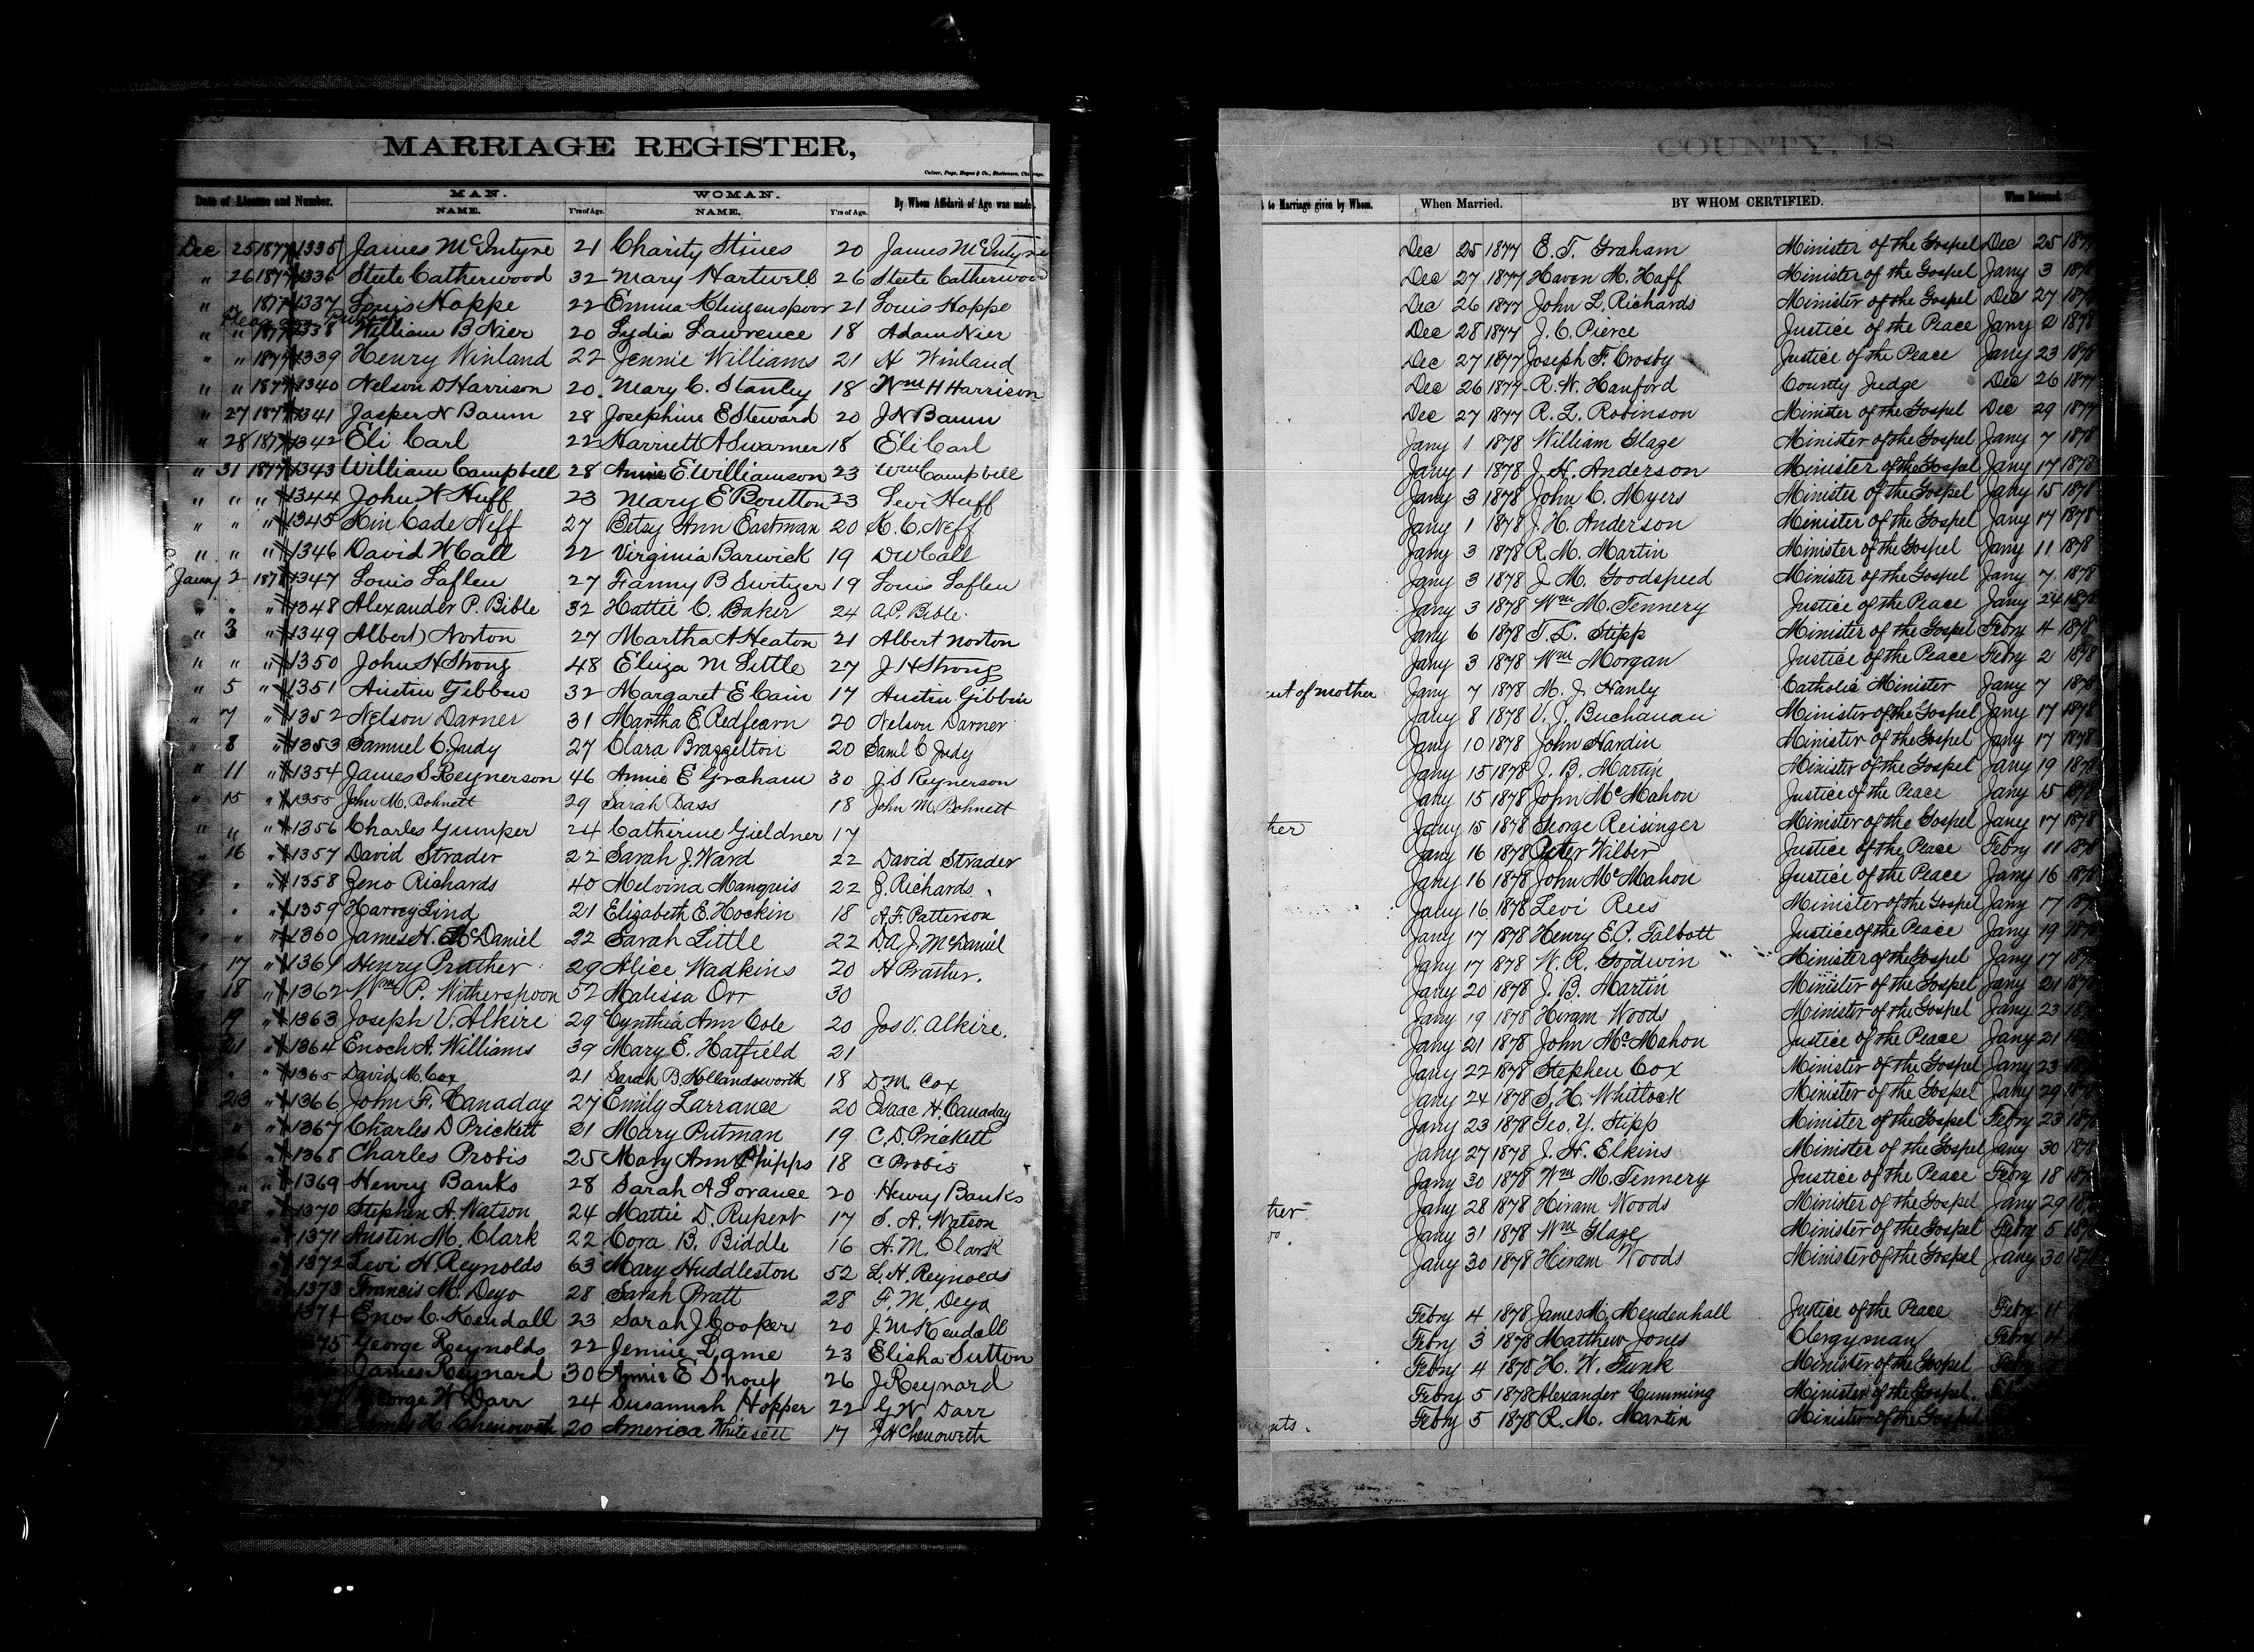 MARRIAGE REGISTER,
Culver, Page, Hoyne & Co., Stationers, Chicago.
Date of License and Number. MAN. NAME. Y'rs of Age. WOMAN. NAME. Y'rs of Age. By Whom Affidavit of Age was made.
Dec 25 1877 #1335 James McIntyre 21 Charity Stines 20 James McIntyre
" 26 1877 #1336 Steete Catherwood 32 Mary Hartwell 26 Steete Catherwood
" " 1877 #1337 Louis Hoppe 22 Emma Klingenspoor 21 Louis Hoppe
" " 1877 #1338 William B Nier 20 Lydia Lawrence 18 Adam Nier
" " 1877 #1339 Henry Winland 22 Jennie Williams 21 H Winland
" " 1877 #1340 Nelson D Harrison 20 Mary C. Stanley 18 Wm H Harrison
" 27 1877 #1341 Jasper N Baum 28 Josephine E Steward 20 J N Baum
" 28 1877 #1342 Eli Carl 22 Harriett A Swarner 18 Eli Carl
" 31 1877 #1343 William Campbell 28 Annie E Williamson 23 Wm Campbell
" " " #1344 John W Huff 23 Mary E Boutton 23 Levi Huff
" " " #1345 Kin Cade Neff 27 Betsy Ann Eastman 20 K. C. Neff
" " " #1346 David W Call 22 Virginia Barwick 19 D W Call
Jany 2 1878 #1347 Louis Laflen 27 Fanny B Switzer 19 Louis Laflen
" " " #1348 Alexander P. Bible 32 Hattie C. Baker 24 A. P. Bible
" 3 " #1349 Albert Norton 27 Martha A Heaton 21 Albert Norton
" " " #1350 John H Strong 48 Eliza M Little 27 J H Strong
" 5 " #1351 Austin Gibben 32 Margaret E Cain 17 Austin Gibbin
" 7 " #1352 Nelson Darner 31 Martha E. Redfearn 20 Nelson Darner
" 8 " #1353 Samuel C. Judy 27 Clara Brazzelton 20 Saml C Judy
" 11 " #1354 James S Reynerson 46 Annie E Graham 30 J. S Reynerson
" 15 " #1355 John M. Bohnett 29 Sarah Dass 18 John M. Bohnett
" " " #1356 Charles Gumper 24 Catherine Gieldner 17
" 16 " #1357 David Strader 22 Sarah J. Ward 22 David Strader
" " " #1358 Zeno Richards 40 Melvina Manguis 22 Z. Richards
" " " #1359 Harvey Lind 21 Elizabeth E. Hockin 18 A. F. Patterson
" " " #1360 James H. McDaniel 22 Sarah Little 22 D. A. J. McDaniel
" 17 " #1361 Henry Prather 29 Alice Wadkins 20 H Prather.
" 18 " #1362 Wm P. Witherspoon 52 Malissa Orr 30
19 " #1363 Joseph V. Alkire 29 Cynthia Ann Cole 20 Jos V. Alkire.
21 " #1364 Enoch A. Williams 39 Mary E. Hatfield 21
" " #1365 David M. Cox 21 Sarah B. Hollandsworth 18 D. M. Cox
23 " #1366 John F. Canaday 27 Emily Larrance 20 Isaac H. Canaday
" " #1367 Charles D Prickett 21 Mary Putman 19 C. D. Prickett
26 " #1368 Charles Probis 25 Mary Ann Phipps 18 C Probis
" " #1369 Henry Banks 28 Sarah A Lorance 20 Henry Banks
28 " #1370 Stephen A. Watson 24 Mattie D. Rupert 17 S. A. Watson
1371 Austin M. Clark 22 Cora B. Biddle 16 A. M. Clark
1372 Levi H. Reynolds 63 Mary Huddleston 52 L. H. Reynolds
1373 Francis M. Deyo 28 Sarah Pratt 28 F. M. Deyo
1374 Enos C. Kendall 23 Sarah J Cooper 20 J. M Kendall
1375 George Reynolds 22 Jennie Lame 23 Elisha Sutton
James Reynard 30 Annie E Shoup 26 J Reynard
George W Darr 24 Susannah Hopper 22 G W Darr
James H Chenoweth 20 America Whitesell 17 J H Chenoweth
COUNTY, 18
t to Marriage given by Whom. When Married. BY WHOM CERTIFIED. When Returned.
Dec 25 1877 E. T. Graham Minister of the Gospel Dec 25 1877
Dec 27 1877 Haven M. Haff Minister of the Gospel Jany 3 1878
Dec 26 1877 John L. Richards Minister of the Gospel Dec 27 1877
Dec 28 1877 J. C. Pierce Justice of the Peace Jany 2 1878
Dec 27 1877 Joseph F. Crosby Justice of the Peace Jany 23 1878
Dec 26 1877 R. W. Hanford County Judge Dec 26 1877
Dec 27 1877 R. L. Robinson Minister of the Gospel Dec 29 1877
Jany 1 1878 William Glaze Minister of the Gospel Jany 7 1878
Jany 1 1878 J. H. Anderson Minister of the Gospel Jany 17 1878
Jany 3 1878 John C. Myers Minister of the Gospel Jany 15 1878
Jany 1 1878 J. H. Anderson Minister of the Gospel Jany 17 1878
Jany 3 1878 R. M. Martin Minister of the Gospel Jany 11 1878
Jany 3 1878 J. M. Goodspeed Minister of the Gospel Jany 7 1878
Jany 3 1878 Wm M. Tennery Justice of the Peace Jany 24 1878
Jany 6 1878 T. L. Stipp Minister of the Gospel Febry 4 1878
Jany 3 1878 Wm Morgan Justice of the Peace Febry 2 1878
nt of mother Jany 7 1878 M. J. Hanly Catholic Minister Jany 7 1878
Jany 8 1878 V. J. Buchanan Minister of the Gospel Jany 17 1878
Jany 10 1878 John Hardin Minister of the Gospel Jany 17 1878
Jany 15 1878 J. B. Martin Minister of the Gospel Jany 19 1878
Jany 15 1878 John McMahon Justice of the Peace Jany 15 1878
ther Jany 15 1878 George Reisinger Minister of the Gospel Jany 17 1878
Jany 16 1878 Peter Wilber Justice of the Peace Febry 11 1878
Jany 16 1878 John McMahon Justice of the Peace Jany 16 1878
Jany 16 1878 Levi Rees Minister of the Gospel Jany 17 1878
Jany 17 1878 Henry E. P. Talbott Justice of the Peace Jany 19 1878
Jany 17 1878 W. R. Goodwin Minister of the Gospel Jany 17 1878
Jany 20 1878 J. B. Martin Minister of the Gospel Jany 21 1878
Jany 19 1878 Hiram Woods Minister of the Gospel Jany 23 1878
Jany 21 1878 John McMahon Justice of the Peace Jany 21 1878
Jany 22 1878 Stephen Cox Minister of the Gospel Jany 23 1878
Jany 24 1878 S. H. Whitlock Minister of the Gospel Jany 29 1878
Jany 23 1878 Geo. Y. Stipp Minister of the Gospel Febry 23 1878
Jany 27 1878 J. H. Elkins Minister of the Gospel Jany 30 1878
Jany 30 1878 Wm M. Tennery Justice of the Peace Febry 18 1878
ther Jany 28 1878 Hiram Woods Minister of the Gospel Jany 29 1878
Jany 31 1878 Wm Glaze Minister of the Gospel Febry 5 1878
Jany 30 1878 Hiram Woods Minister of the Gospel Jany 30 1878
Febry 4 1878 James M. Mendenhall Justice of the Peace Febry 11
Febry 3 1878 Matthew Jones Clergyman Febry 4
Febry 4 1878 H. W. Funk Minister of the Gospel
Febry 5 1878 Alexander Cumming Minister of the Gospel
nts. Febry 5 1878 R. M. Martin Minister of the Gospel